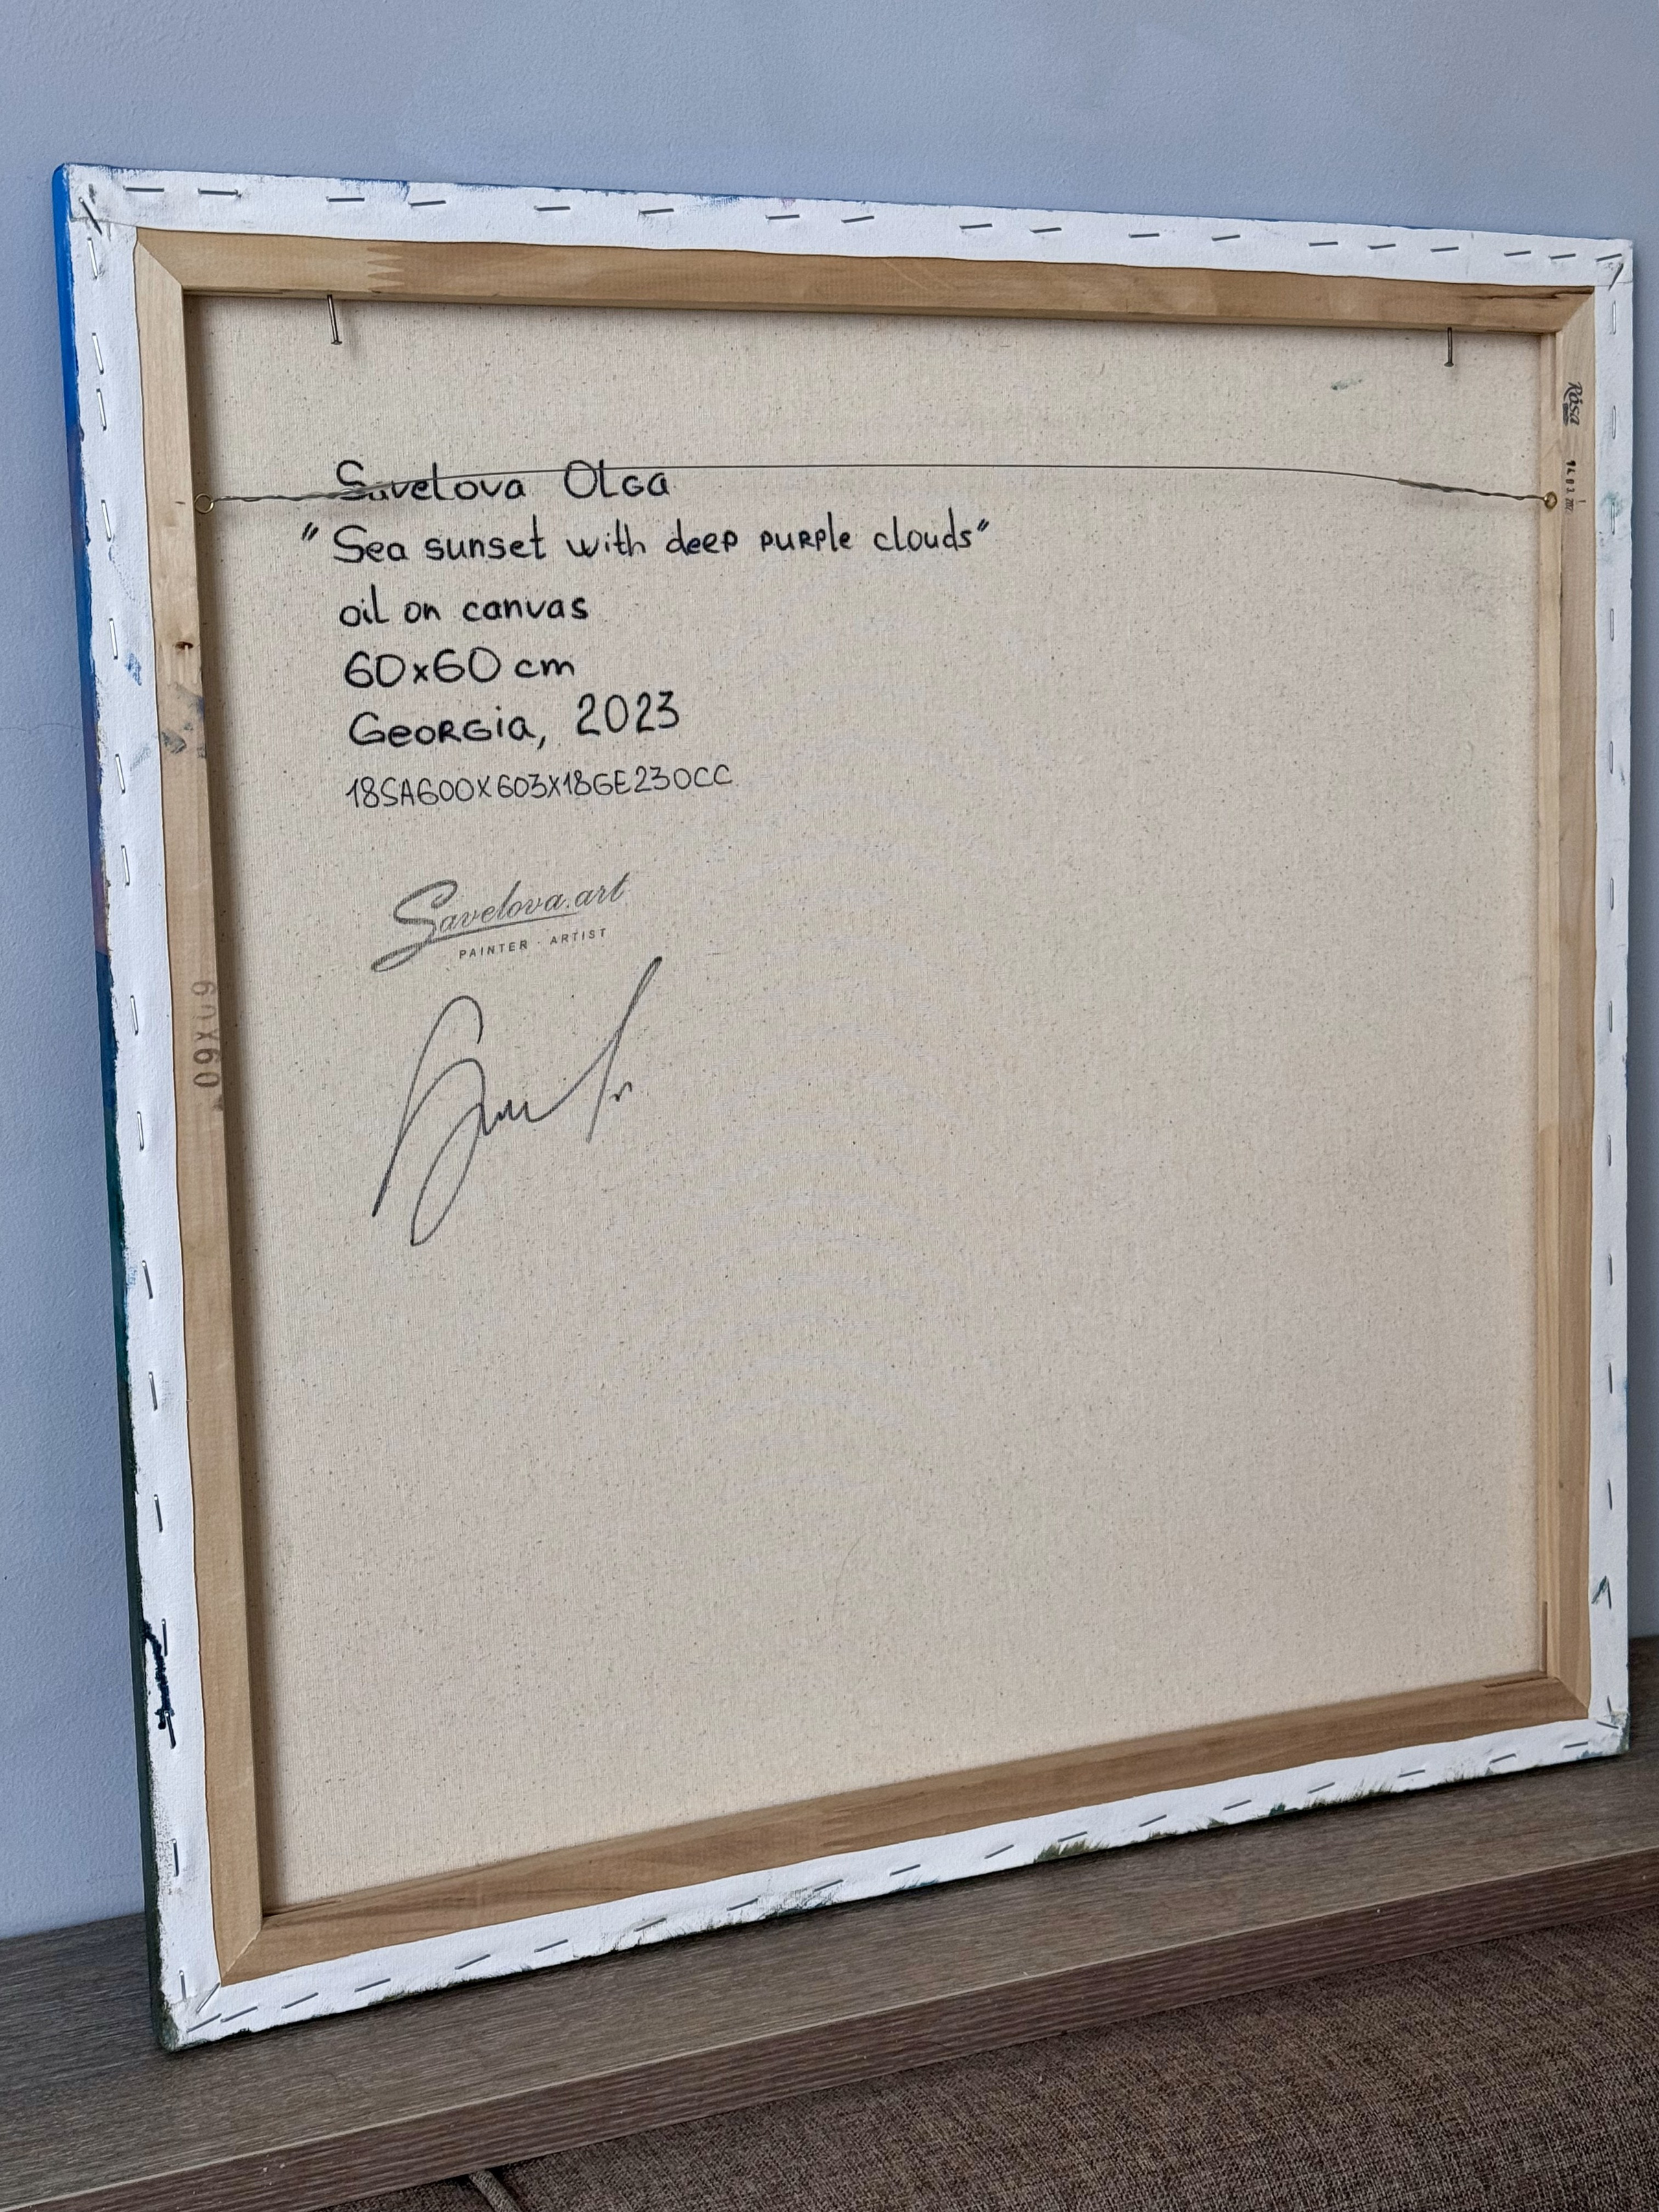 Savelova Olga
"Sea sunset with deep purple clouds"
oil on canvas
60x60 cm
Georgia, 2023
18SA600X603X18GE230CC
Savelova.art
PAINTER · ARTIST
60X60
Rosa